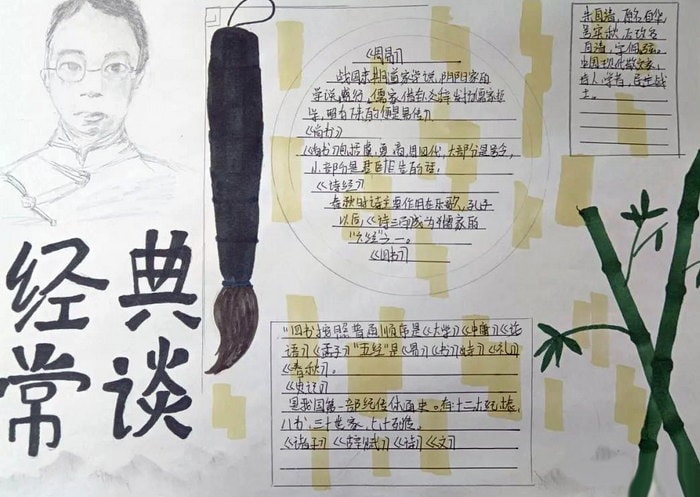 经典
常谈
《周易》
战国末期道家学说、阴阳家的
学说盛行,儒家
《尚书》
《尚书》包括虞、夏、商、周四代,大部分是号令,
小部分是
《诗经》
春秋时诗主要作用在乐歌,孔子
以后,《诗三百》成为儒家的
“六经”之一。
《四书》
朱自清,原名自华,
号实秋,后改名
自清,字佩弦。
中国现代散文家、
诗人、学者、民主战
士。
“四书”按照普通顺序是《大学》《中庸》《论
语》《孟子》“五经”是《易》《书》《诗》《礼》
《春秋》。
《史记》
是我国第一部纪传体通史。有十二本纪,十表,
八书,三十世家,七十列传。
《诸子》《辞赋》《诗》《文》